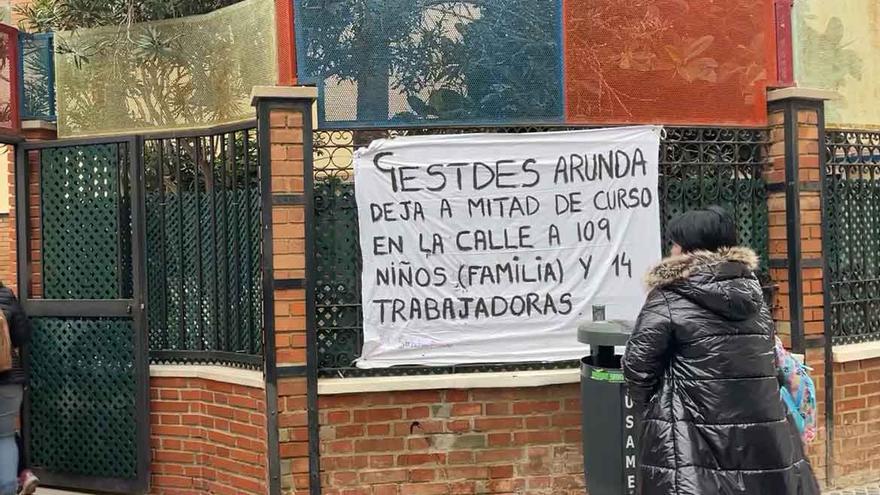 GESTDES ARUNDA
DEJA A MITAD DE CURSO
EN LA CALLE A 109
NIÑOS (FAMILIA) Y 14
TRABAJADORAS.
USAME